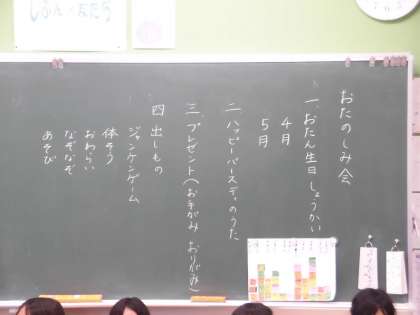 おたのしみ会
一、おたん生日しょうかい
４月
５月
二、ハッピーバースディのうた
三、プレゼント(お手がみ おりがみ)
四 出しもの
ジャンケンゲーム
体そう
おわらい
なぞなぞ
あそび